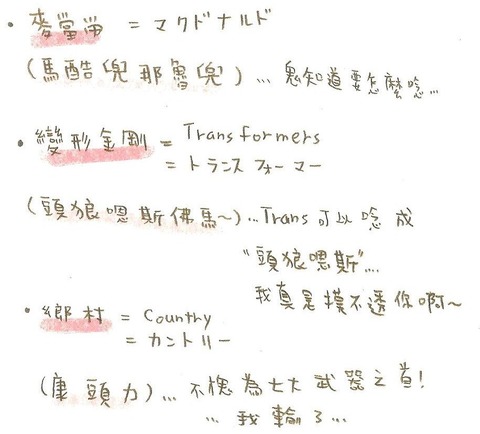 • 麥當勞 = マクドナルド
(馬酷兜那魯兜)... 鬼知道要怎麼唸...
• 變形金剛 = Transformers
= トランスフォーマー
(頭狼嗯斯佛馬~)...Trans 可以唸成
"頭狼嗯斯"...
我真是摸不透你啊~
• 鄉村 = Country
= カントリー
(康頭力)... 不愧為七大武器之首!
... 我輸了...